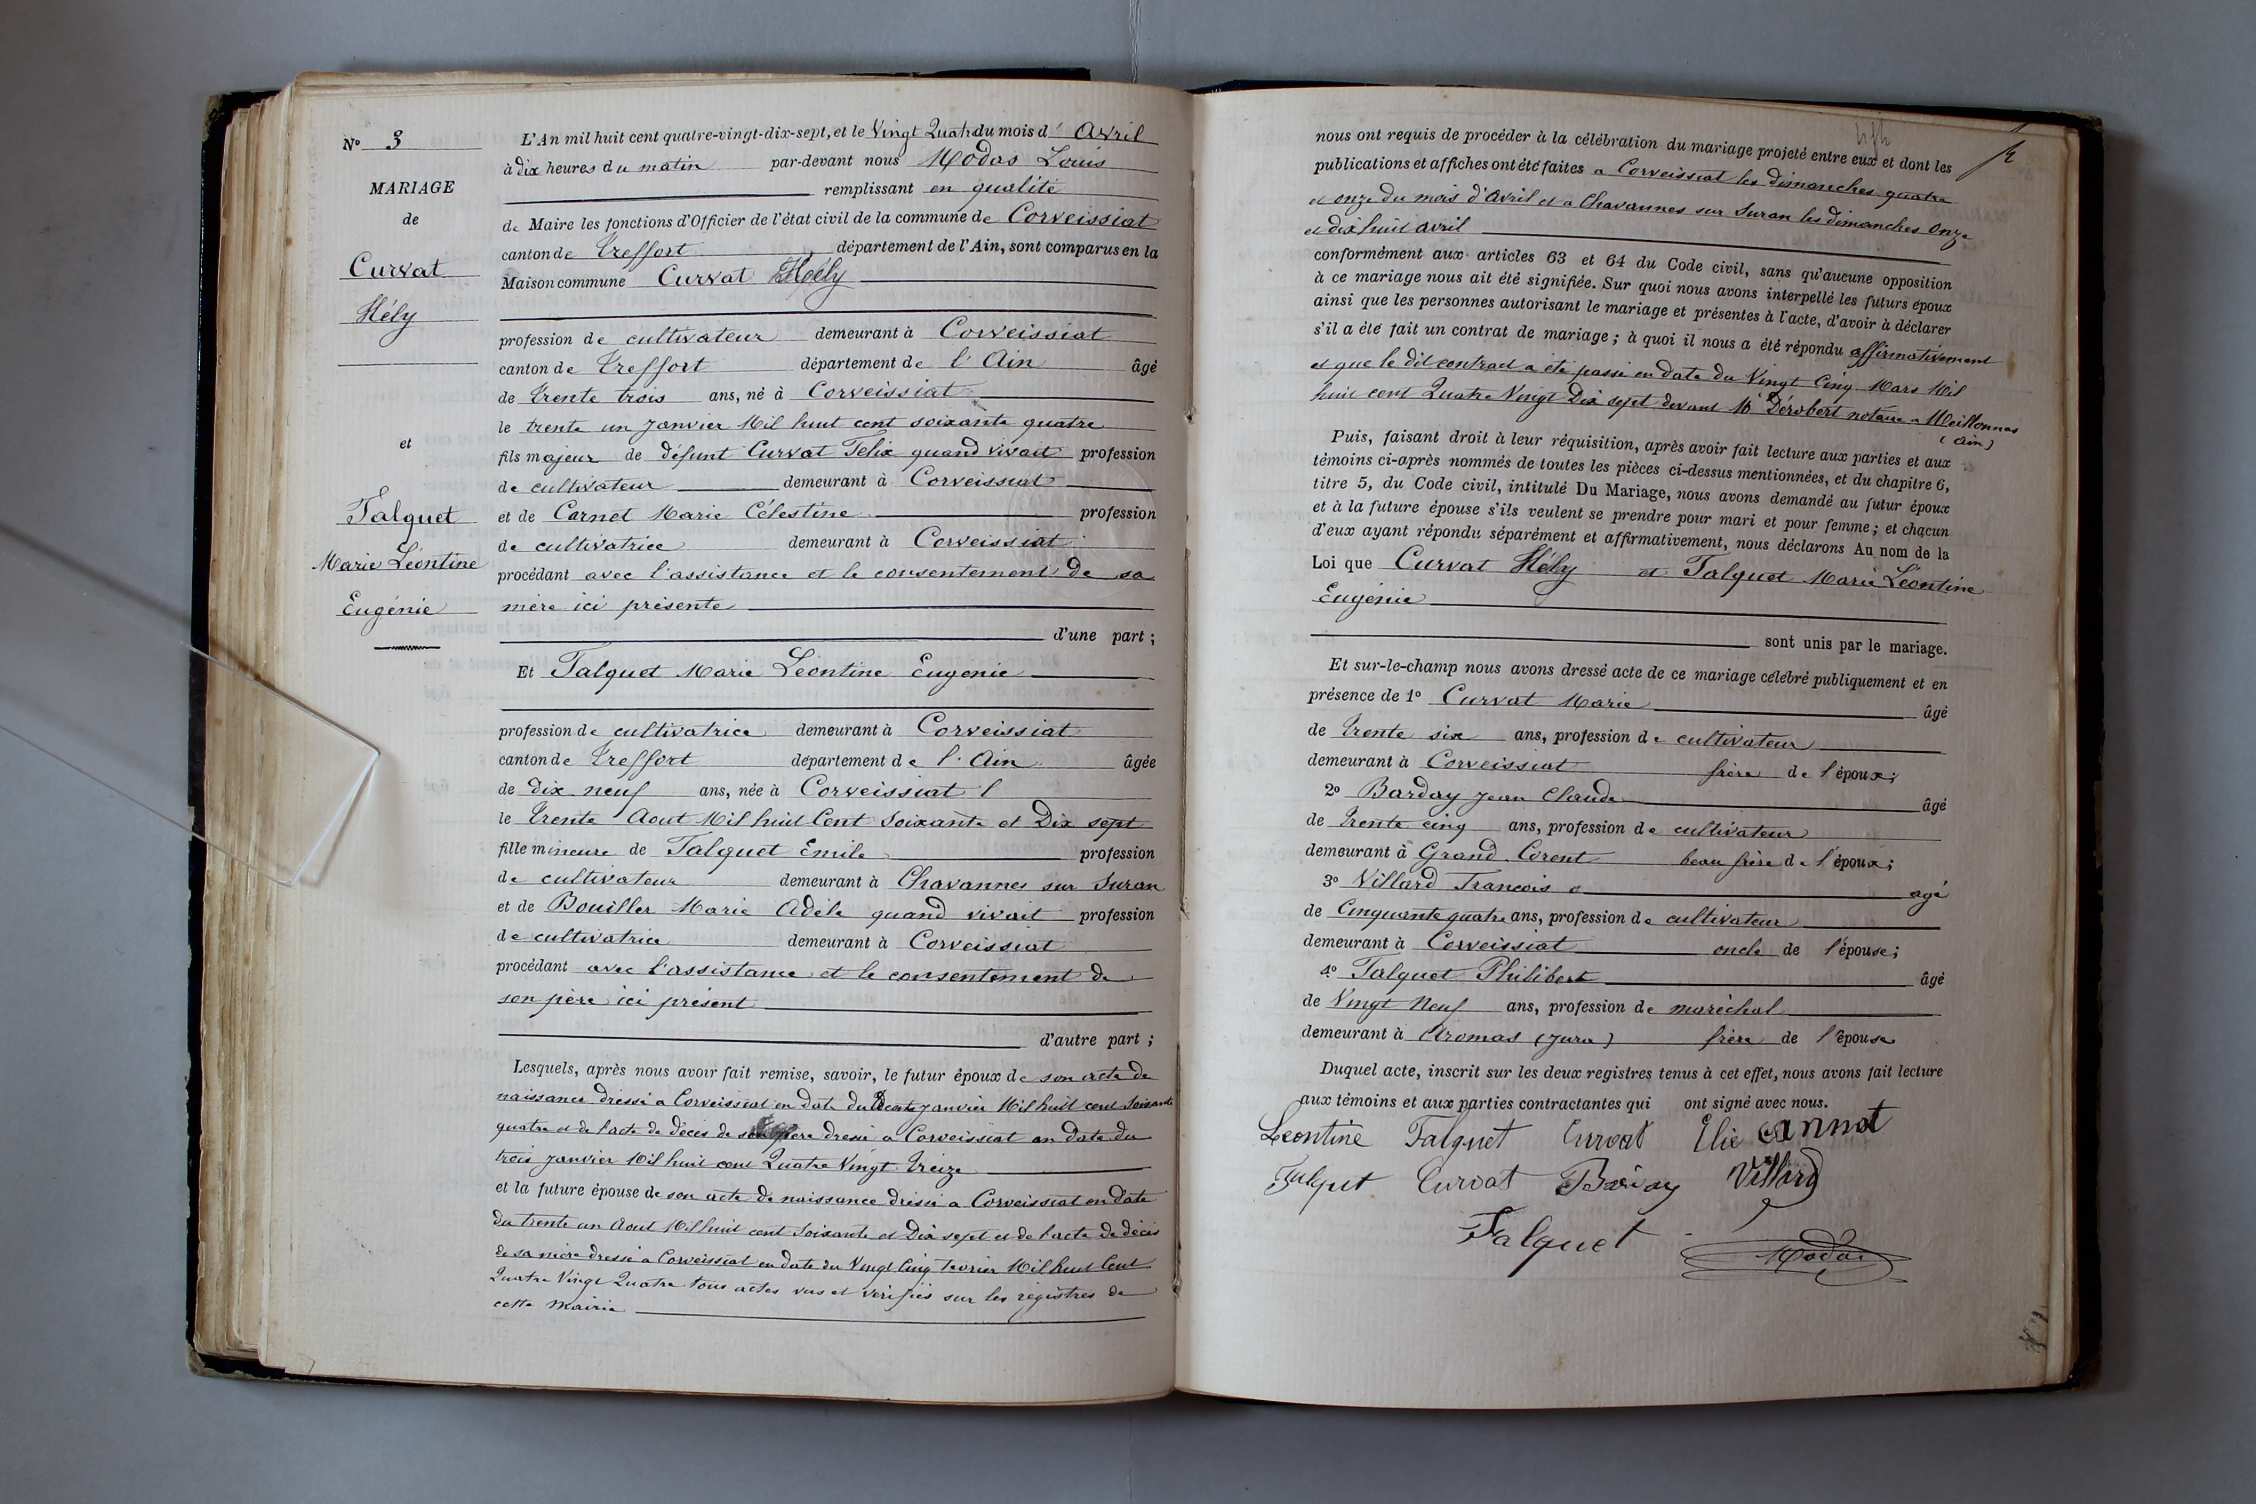 N° 3
MARIAGE
de
Curvat
Hély
et
Falquet
Marie Léontine
Eugénie
L'An mil huit cent quatre-vingt-dix-sept, et le Vingt Quatr du mois d' Avril
à dix heures du matin par-devant nous Modas Louis
remplissant en qualité
de Maire les fonctions d'Officier de l'état civil de la commune de Corveissiat
canton de Treffort département de l'Ain, sont comparus en la
Maison commune Curvat Hély
profession de cultivateur demeurant à Corveissiat
canton de Treffort département de l'Ain âgé
de trente trois ans, né à Corveissiat
le trente un janvier Mil huit cent soixante quatre
fils majeur de défunt Curvat Félix quand vivait profession
de cultivateur demeurant à Corveissiat
et de Carnet Marie Célestine profession
de cultivatrice demeurant à Corveissiat
procédant avec l'assistance et le consentement de sa
mère ici présente
d'une part ;
Et Falquet Marie Léontine Eugénie
profession de cultivatrice demeurant à Corveissiat
canton de Treffort département de l'Ain âgée
de dix neuf ans, née à Corveissiat l
le trente Aout Mil huit Cent Soixante et Dix sept
fille mineure de Falquet Emile profession
de cultivateur demeurant à Chavannes sur Suran
et de Bouiller Marie Adèle quand vivait profession
de cultivatrice demeurant à Corveissiat
procédant avec l'assistance et le consentement de
son père ici présent
d'autre part ;
Lesquels, après nous avoir fait remise, savoir, le futur époux de son acte de
naissance dressé a Corveissiat en date du janvier Mil huit cent Soixante
quatre et de l'acte de décès de son père dressé a Corveissiat en date du
trois janvier Mil huit cent Quatre Vingt Treize
et la future épouse de son acte de naissance dressé a Corveissiat en date
du trente un Aout Mil huit cent Soixante et Dix sept et de l'acte de décès
de sa mère dressé a Corveissiat en date du Vingt Cinq Fevrier Mil huit Cent
Quatre Vingt Quatre tous actes vus et vérifiés sur les registres de
cette Mairie
nous ont requis de procéder à la célébration du mariage projeté entre eux et dont les
publications et affiches ont été faites a Corveissiat les dimanches quatre
et onze du mois d'Avril et a Chavannes sur Suran les dimanches Onze
et dix huit avril
conformément aux articles 63 et 64 du Code civil, sans qu'aucune opposition
à ce mariage nous ait été signifiée. Sur quoi nous avons interpellé les futurs époux
ainsi que les personnes autorisant le mariage et présentes à l'acte, d'avoir à déclarer
s'il a été fait un contrat de mariage ; à quoi il nous a été répondu affirmativement
et que le dit contrat a été passé en date du Vingt Cinq Mars Mil
huit cent Quatre Vingt Dix sept devant Me Dérobert notaire a Meillonnas
(Ain)
Puis, faisant droit à leur réquisition, après avoir fait lecture aux parties et aux
témoins ci-après nommés de toutes les pièces ci-dessus mentionnées, et du chapitre 6,
titre 5, du Code civil, intitulé Du Mariage, nous avons demandé au futur époux
et à la future épouse s'ils veulent se prendre pour mari et pour femme ; et chacun
d'eux ayant répondu séparément et affirmativement, nous déclarons Au nom de la
Loi que Curvat Hély et Falquet Marie Léontine
Eugénie
sont unis par le mariage.
Et sur-le-champ nous avons dressé acte de ce mariage célébré publiquement et en
présence de 1° Curvat Marie âgé
de Trente six ans, profession de cultivateur
demeurant à Corveissiat frère de l'époux ;
2° Barday Jean Claude âgé
de Trente cinq ans, profession de cultivateur
demeurant à Grand Corent beau frère de l'époux ;
3° Villard François agé
de Cinquante quatre ans, profession de cultivateur
demeurant à Corveissiat oncle de l'épouse ;
4° Falquet Philibert âgé
de Vingt Neuf ans, profession de maréchal
demeurant à Aromas (Jura) frère de l'épouse
Duquel acte, inscrit sur les deux registres tenus à cet effet, nous avons fait lecture
aux témoins et aux parties contractantes qui ont signé avec nous.
Léontine Falquet Curvat Elie
Falquet Curvat Barday Villard
Falquet Modas